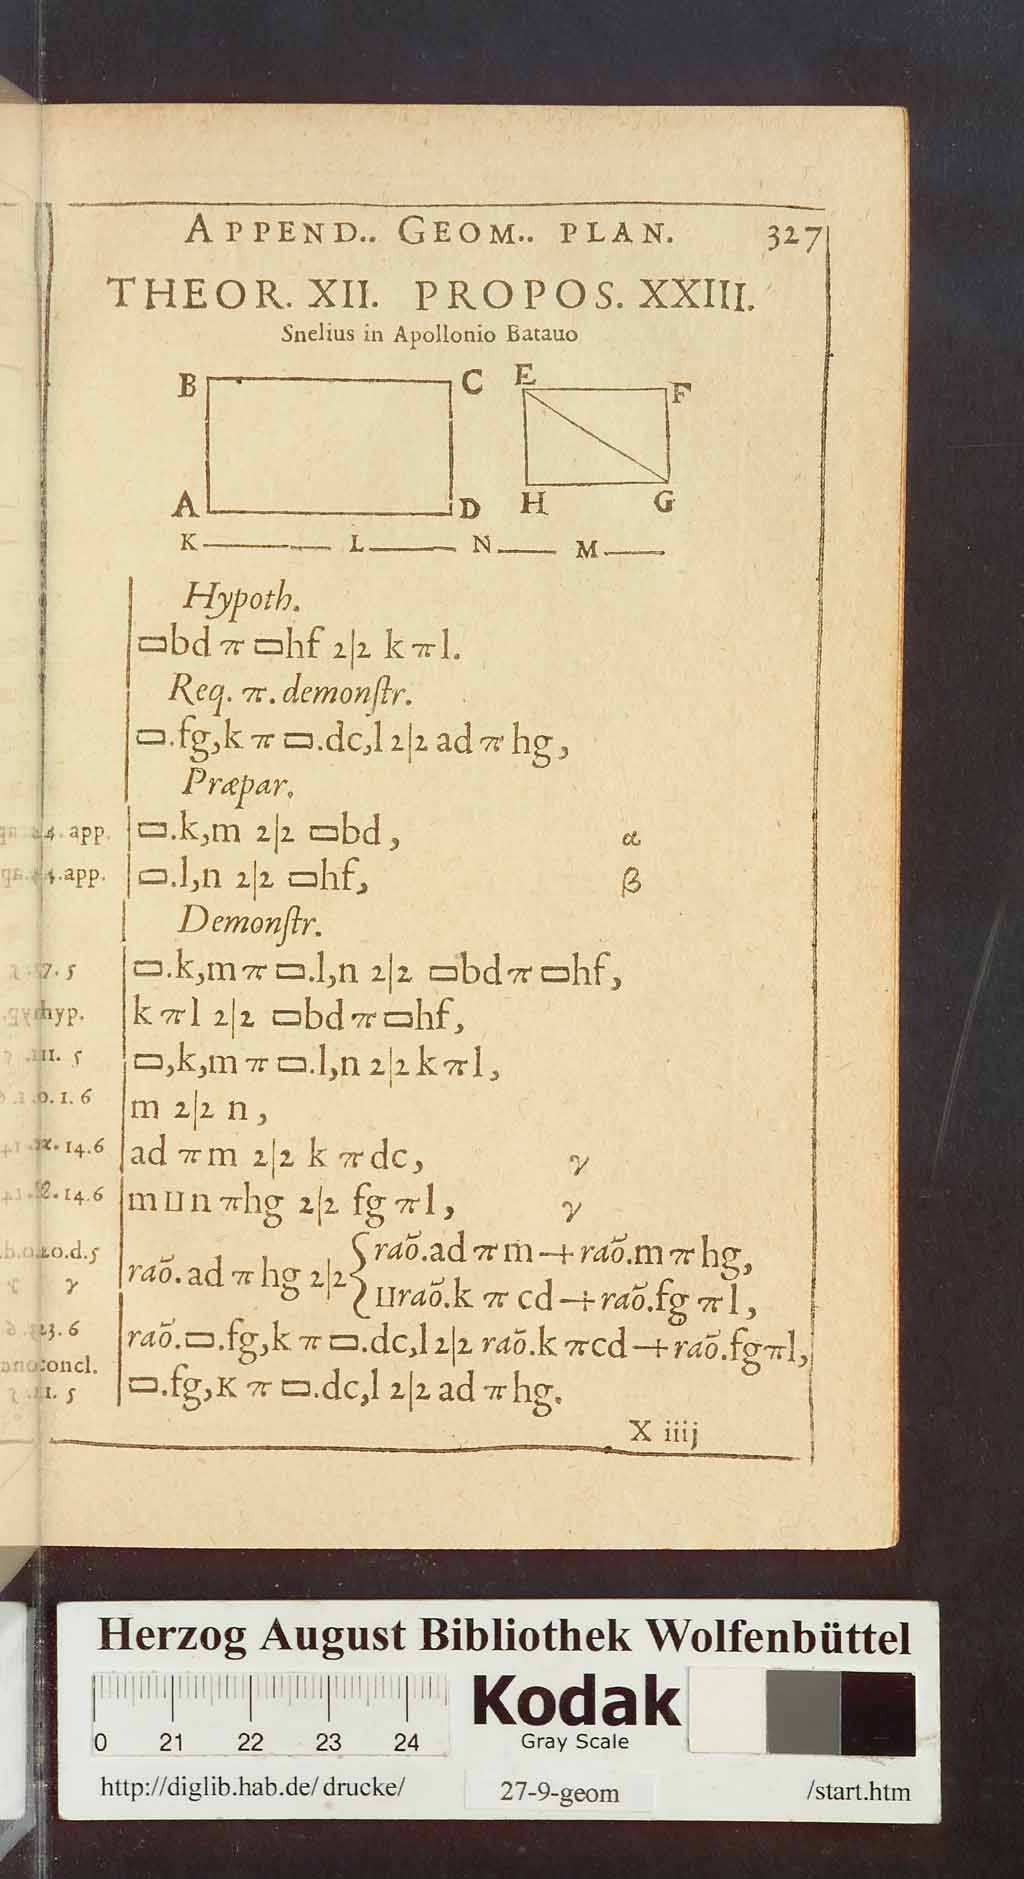 APPEND.. GEOM.. PLAN. 327
THEOR. XII. PROPOS. XXIII.
Snelius in Apollonio Batauo
B C E F
A D H G
K L N M
Hypoth.
▭bd π ▭hf 2|2 k π l.
Req. π. demonſtr.
▭.fg,k π ▭.dc,l 2|2 ad π hg,
Præpar.
4. app. ▭.k,m 2|2 ▭bd, α
4.app. ▭.l,n 2|2 ▭hf, β
Demonſtr.
7. 5 ▭.k,m π ▭.l,n 2|2 ▭bd π ▭hf,
hyp. k π l 2|2 ▭bd π ▭hf,
11. 5 ▭,k,m π ▭.l,n 2|2 k π l,
1. 6 m 2|2 n,
14.6 ad π m 2|2 k π dc, γ
14.6 m II n π hg 2|2 fg π l, γ
d.5 raõ. ad π hg 2|2 { raõ.ad π m + raõ.m π hg,
γ II raõ.k π cd + raõ.fg π l,
23. 6 raõ.▭.fg,k π ▭.dc,l 2|2 raõ.k π cd + raõ.fg π l,
concl.
1. 5 ▭.fg,K π ▭.dc,l 2|2 ad π hg.
X iiij
Herzog August Bibliothek Wolfenbüttel
0 21 22 23 24
Kodak
Gray Scale
http://diglib.hab.de/drucke/ 27-9-geom /start.htm